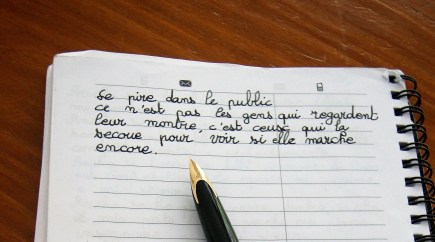 Le pire dans le public
ce n'est pas les gens qui regardent
leur montre, c'est ceux qui la
secoue pour voir si elle marche
encore.